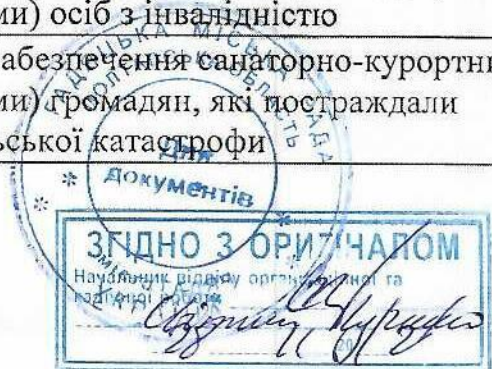 ми) осіб з інвалідністю
абезпечення санаторно-курортни
ми) громадян, які постраждали
ьської катастрофи
МІСЬКА РАДА
ОБЛАСТЬ
Для
документів
ЗГІДНО З ОРИГІНАЛОМ
Начальник відділу організаційної та
кадрової роботи
20